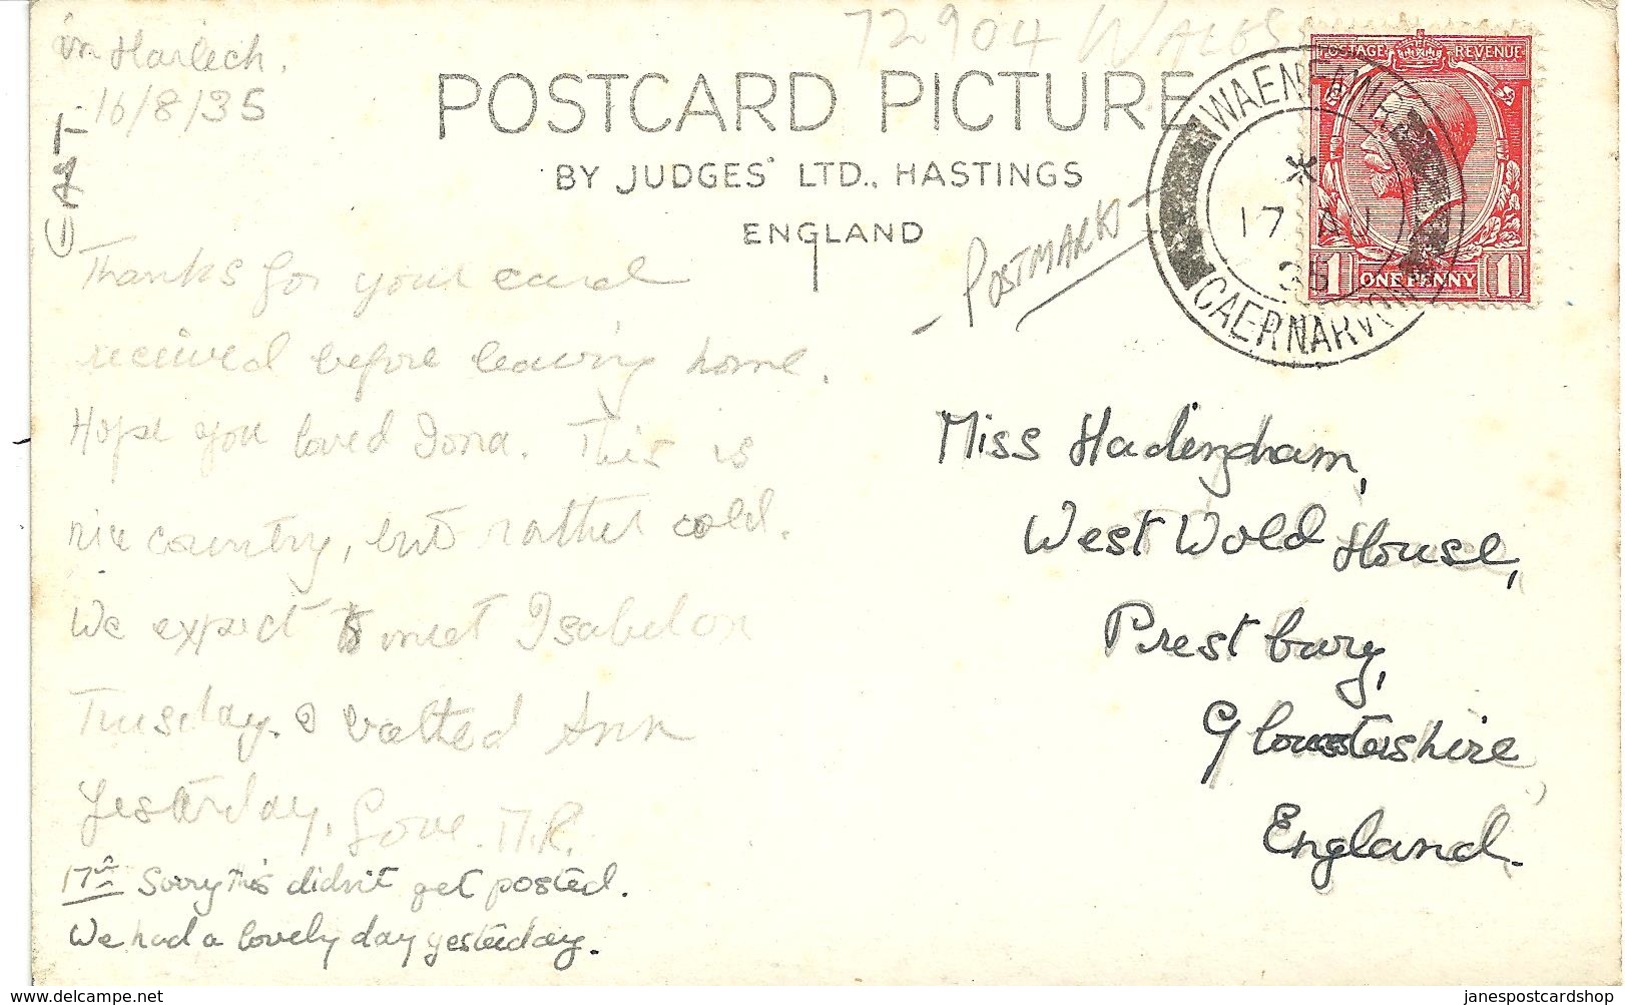 72904 WALES
in Harlech.
16/8/35
CAST.
POSTCARD PICTURE
BY JUDGES' LTD., HASTINGS
ENGLAND
POSTMARK
POSTAGE REVENUE
1 ONE PENNY 1
17 AU
35
CAERNARVON
Thanks for your card
received before leaving home.
Hope you loved Iona. This is
nice country, but rather cold.
We expect to meet Isabel on
Tuesday. I visited Ann
yesterday. Love. M.R.
17th Sorry this didn't get posted.
We had a lovely day yesterday.
Miss Hadingham,
West Wold House,
Prestbury,
Gloucestershire
England.
www.delcampe.net
janespostcardshop